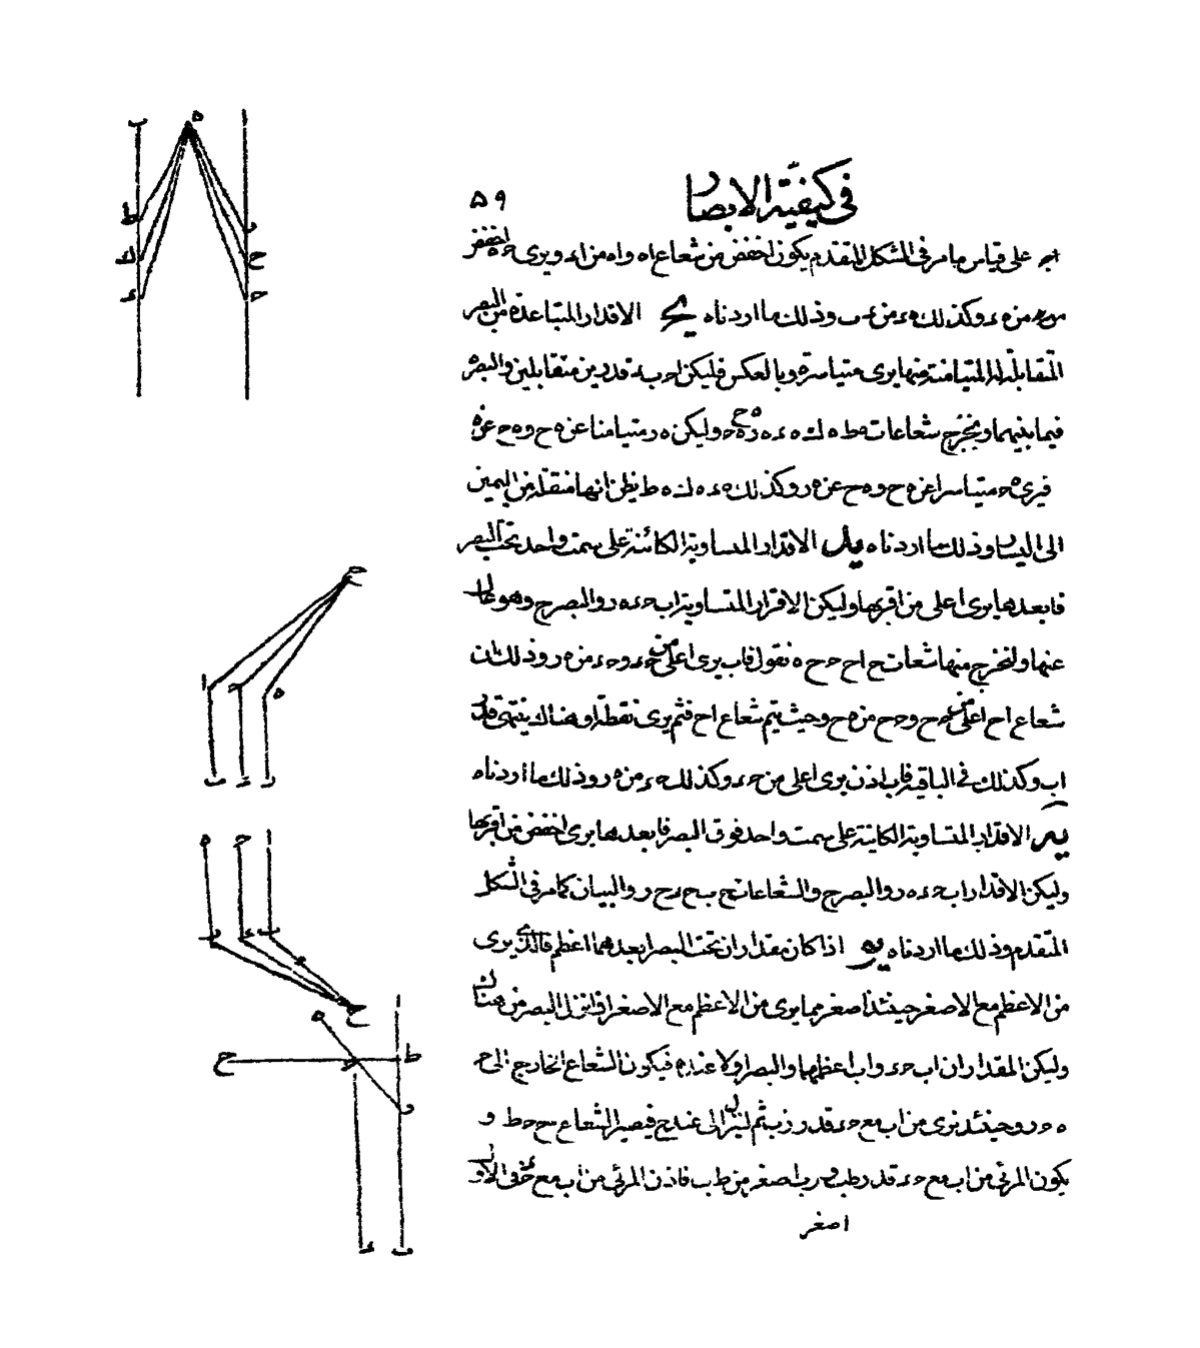 في كيفيّة الابصار ٥٩
على قياس ما مر في الشكل المتقدم يكون اخفض من شعاع اه واه من اء ويرى حه اخفض
من ه ء وكذلك ء من ء ب وذلك ما اردناه يج الاقدار المتباعدة من البصر
المتقابلة له المتيامنة منها يرى متياسرة وبالعكس فليكن اح ب ء قدرين متقابلين والبصر ه
فيما بينهما ويخرج شعاعات ه ط ه ك ه ء ه ر ه ح ه ح وليكن ه ر متيامنا عن ه ح و ه ح عن ه
فيرى ه ح متياسرا عن ه ح و ه ح عن ه ر وكذلك ه ء ه ك ه ط يظن انها منتقلة من اليمين
الى اليسار وذلك ما اردناه يد الاقدار المتساوية الكائنة على سمت واحد تحت البصر
فابعدها يرى اعلى من اقربها وليكن الاقدار المتساوية اب حء ه ر والبصر ح وهو عال
عنها ولنخرج منها شعاعات ح ا ح ح ح ه نقول فاب يرى اعلى من حء وحء من ه ر وذلك لان
شعاع اح اعلى من ح ح و ح ح من ه ح وحيث يتم شعاع اح فثم يرى نقطة ا وهناك ينتهى قدر
اب وكذلك في الباقية فاب اذن يرى اعلى من حء وكذلك حء من ه ر وذلك ما اردناه
يه الاقدار المتساوية الكاينة على سمت واحد فوق البصر فابعدها يرى اخفض من اقربها
وليكن الاقدار اب حء ه ر والبصر ح والشعاعات ح ب ح ء ح ر والبيان كما مر في الشكل
المتقدم وذلك ما اردناه يو اذا كان مقداران تحت البصر ابعدهما اعظم فالذي يرى
من الاعظم مع الاصغر حينئذ اصغر مما يرى من الاعظم مع الاصغر اذا نزل البصر من هناك
وليكن المقداران اب حء و اب اعظمها والبصر اولا عند ه فيكون الشعاع الخارج الى ح
ه ح ر وحينئذ نرى من اب مع حء قدر ر ب ثم لينزل الى عند ح فيصير الشعاع ح ح ط و
يكون المرئي من اب مع حء قدر ط ب و ر ب اصغر من ط ب فاذن المرئي من اب مع حء في الاول
اصغر
ب ه ا
ط ر
ك ح
ء ح
ح
ا ح ه
ب ء ر
ه ح ا
ر ء ب
ح
ا
ه
ح ح ط
ر
ء ب